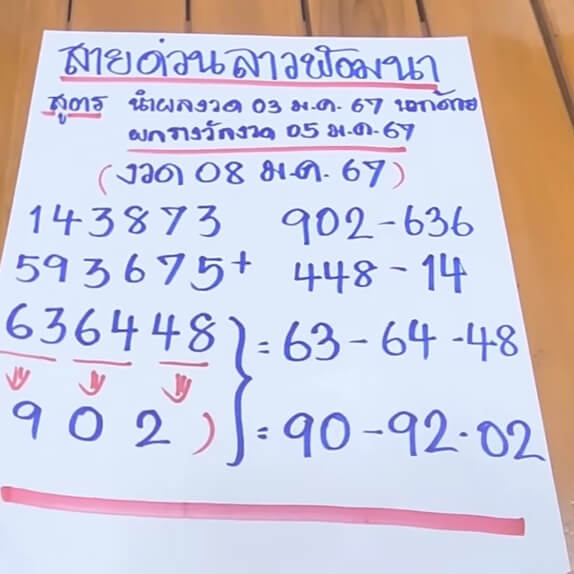 สายด่วนลาวพัฒนา
สูตร นำผลงวด 03 ม.ค. 67 บอกด้วย
ผกรางวัลงวด 05 ม.ค. 67
(งวด 08 ม.ค. 67)
143873 902-636
593675+ 448-14
636448 } = 63-64-48
902) = 90-92.02